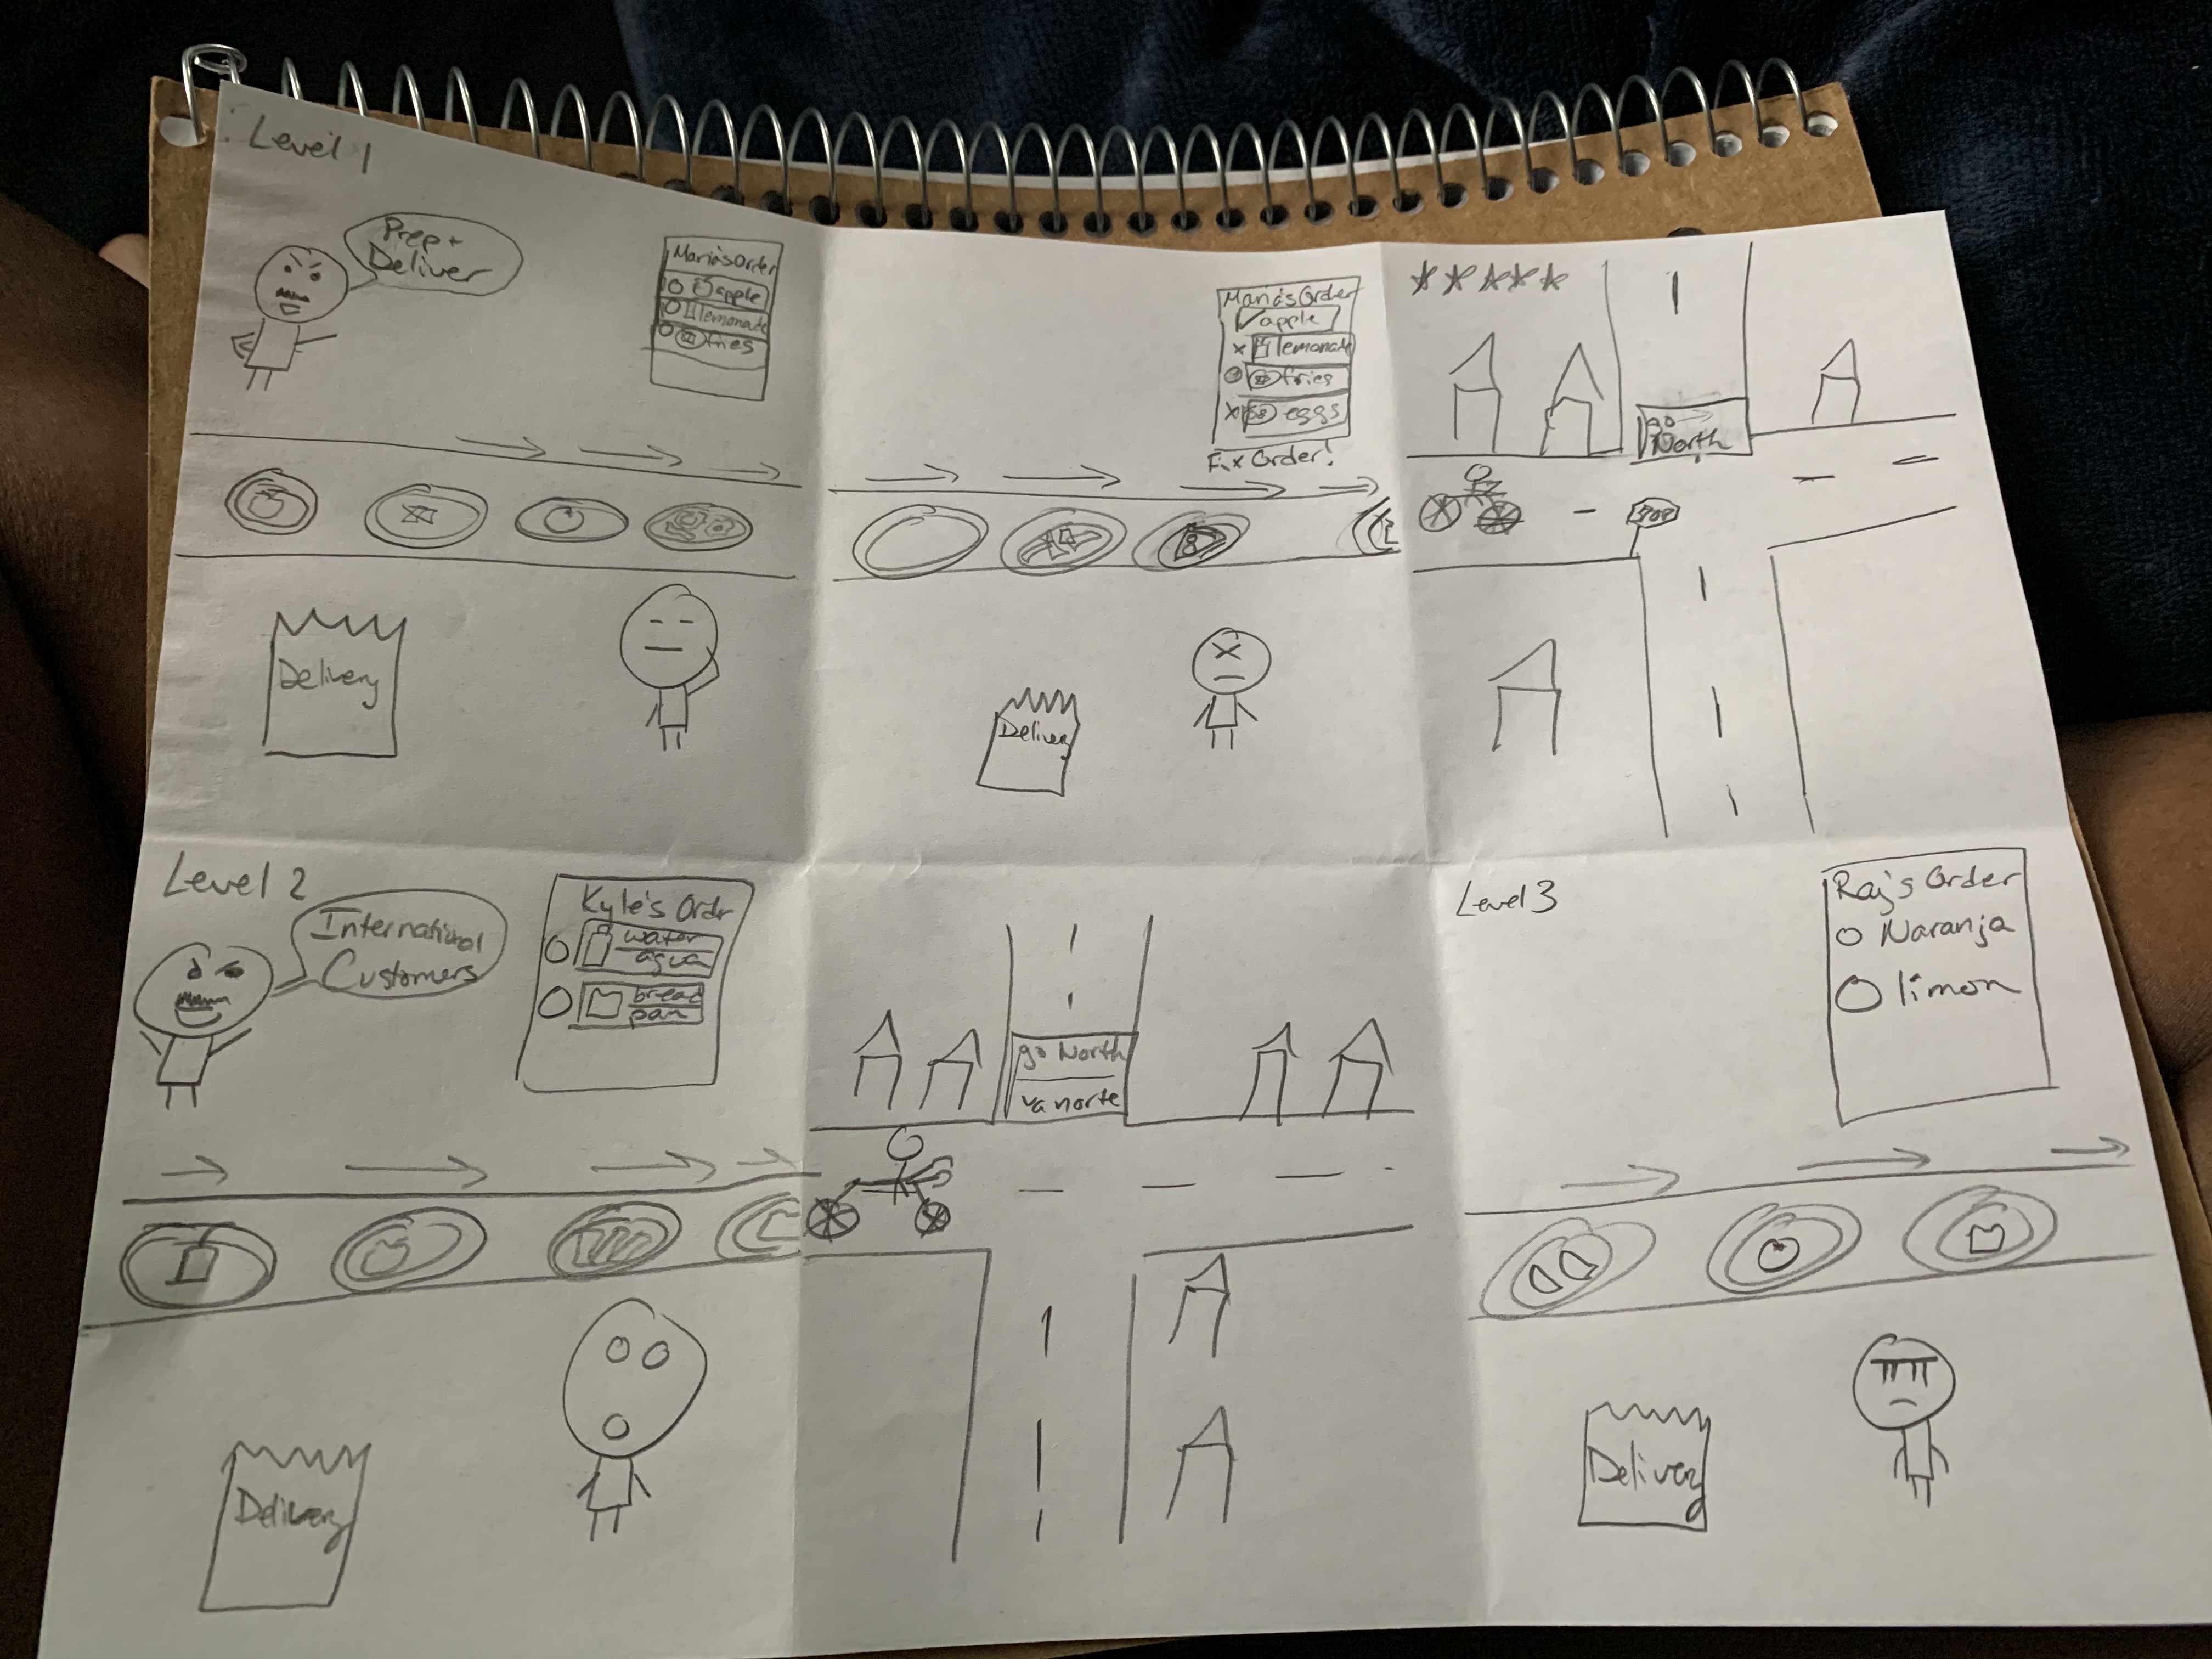 Level 1
Prep +
Deliver
Maria's Order
apple
lemonade
fries
Delivery
Maria's Order
apple
lemonade
fries
eggs
Fix Order!
Delivery
go
North
Level 2
International
Customers
Kyle's Order
water
agua
bread
pan
Delivery
go North
va norte
Level 3
Raj's Order
Naranja
limon
Delivery